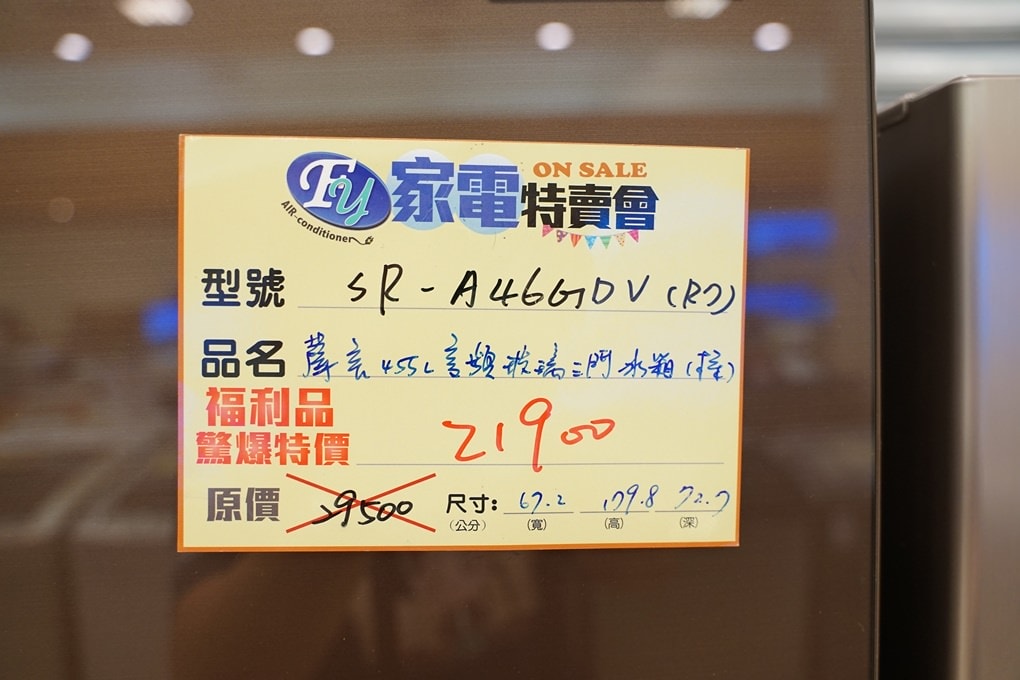 Fy 家電 ON SALE
AIR-conditioner 特賣會
型號 SR-A46GDV (R7)
品名 聲寶455L變頻玻璃三門冰箱(棕)
福利品
驚爆特價 21900
原價 39500 尺寸: 67.2 179.8 72.7
(公分) (寬) (高) (深)